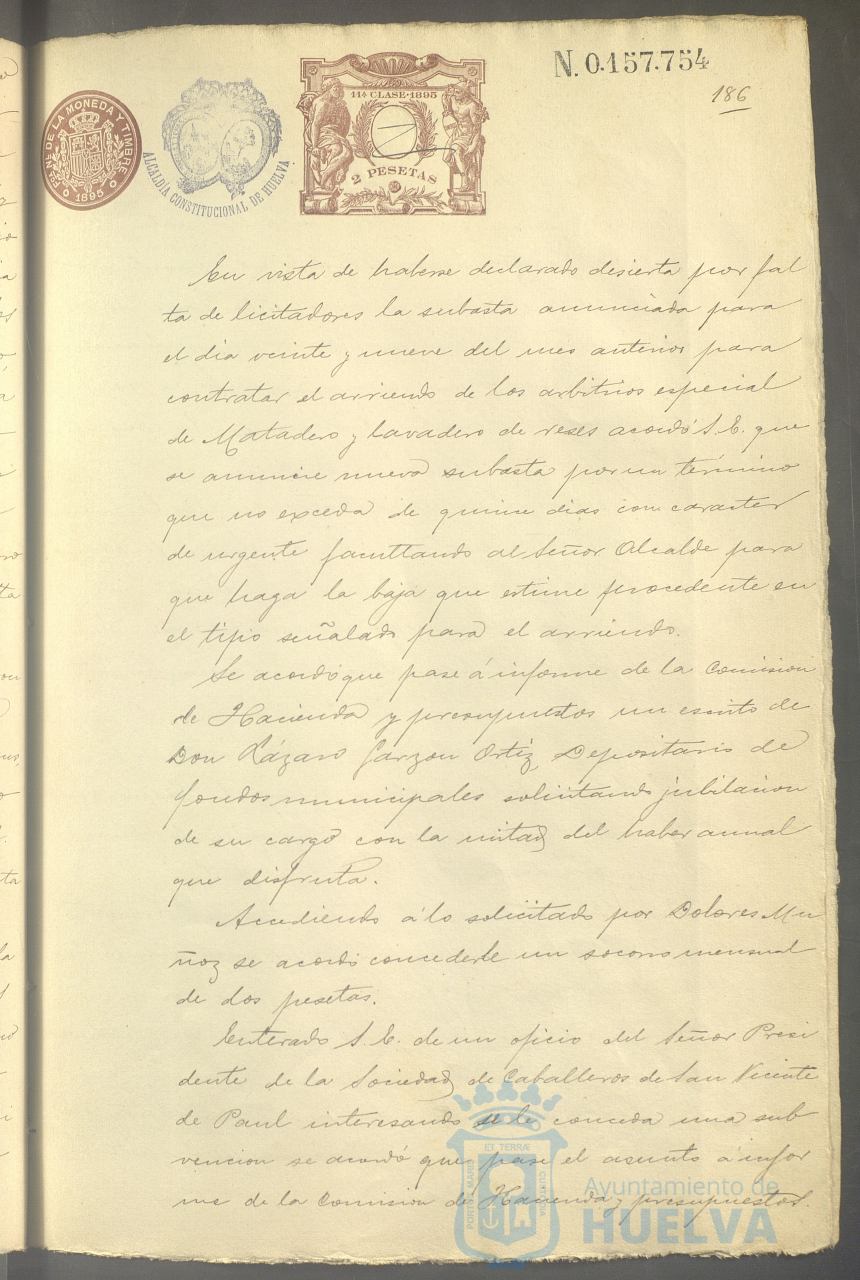 N. 0.157.754
186
FABCA DE LA MONEDA Y TIMBRE
1895
ALCALDÍA CONSTITUCIONAL DE HUELVA
11ª CLASE-1895
2 PESETAS
En vista de haberse declarado desierta por fal
ta de licitadores la subasta anunciada para
el dia veinte y nueve del mes anterior para
contratar el arriendo de los arbitrios especial
de Matadero y lavadero de reses acordó S. E. que
se anuncie nueva subasta por un término
que no exceda de quince dias con caracter
de urgente facultando al Señor Alcalde para
que haga la baja que estime procedente en
el tipo señalado para el arriendo.
Se acordó que pase á informe de la Comision
de Hacienda y presupuestos un escrito de
Don Lázaro Garzon Ortiz, Depositario de
fondos municipales solicitando jubilacion
de su cargo con la mitad del haber annal
que disfruta.
Accediendo á lo solicitado por Dolores Mu
ñoz se acordó concederle un socorro mensual
de dos pesetas.
Enterado S. E. de un oficio del Señor Presi
dente de la Sociedad de Caballeros de San Vicente
de Paul interesando se le conceda una sub
vencion se acordó que pase el asunto á infor
me de la Comision de Hacienda y presupuestos.
ET TERRÆ
PORTUS MARIS
CUSTODIA
Ayuntamiento de
HUELVA